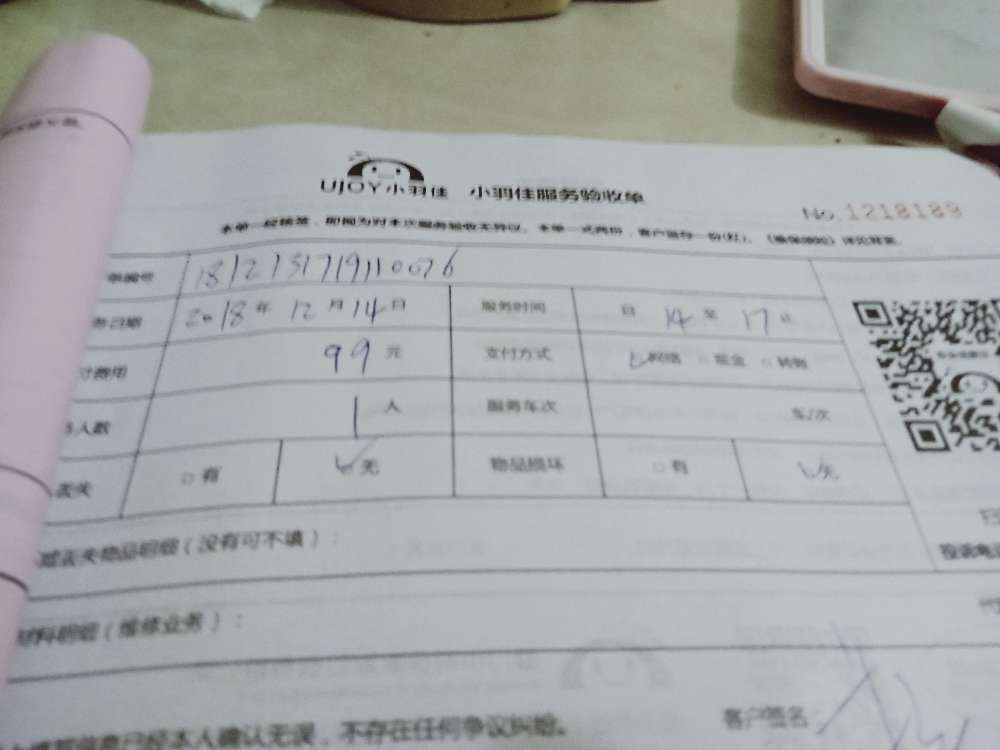 UJOY小羽佳 小羽佳服务验收单
No. 1218189
本单一经接签，即视为对本次服务验收无异议。本单一式两份，客户留存一份(红)。
单编号
务日期 2018年 12月14日 服务时间 日 14 至 17 止
付费用 99 元 支付方式 网络 □ 现金 □ 转账
务人数 1人 服务车次 车/次
丢失 □ 有 无 物品损坏 □ 有 无
丢失物品明细（没有可不填）：
材料明细（维修业务）：
已经本人确认无误，不存在任何争议纠纷。
客户签名：
投诉电